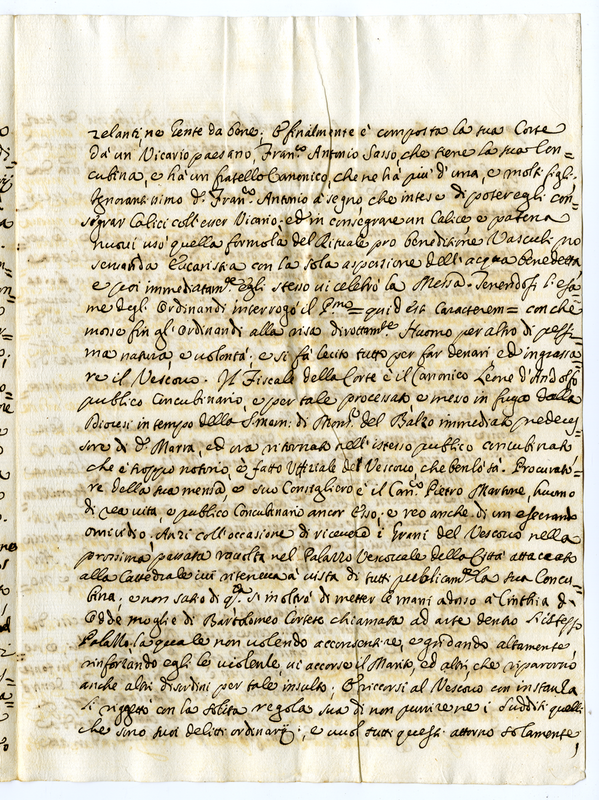 zelanti, ne gente da bene; E finalmente è composta la sua Corte
da un Vicario paesano, Fran.co Antonio Sasso che tiene la sua Con=
cubina, e ha un fratello Canonico, che ne ha più d'una, e molti figli.
Ignorantissimo d.o Fran.co Antonio a segno che intese di poter egli con=
segrar Calici coll'esser Vicario. ed in consegrare un Calice e patena
nuovi usò quella formola del Rituale pro benedictione Vasculi pro
servanda Eucaristia con la sola aspersione dell'acqua benedetta
e poi immediatam.te egli stesso vi celebrò la Messa. Tenendosi l'esa=
me degl'Ordinandi interrogò il P.mo= quid est Caracterem= con che
mosse fin gl'Ordinandi alla risa dirottam.te Huomo per altro di pessi=
ma natura, e volontà. e si fa lecito tutto per far denari ed ingrassa=
re il Vescovo. Il Fiscale della Corte è il Canonico Leone d'Andolfo
publico Concubinario, e per tale processato, e messo in fuga dalla
Diocesi in tempo della di Mons.r del Balzo immediato predeces=
sore di d.o Marra, ed ora ritornato nell'istesso publico concubinato
che è troppo notorio, è fatto Uffiziale del Vescovo, che ben lo sà. Procurato=
re della sua mensa e suo Consigliero è il Can.co Pietro Martone, huomo
di rea vita, e publico Concubinario ancor Esso, e reo anche di un esecrando
omicidio. Anzi coll'occasione di ricevere i grani del Vescovo nella
prossima passata raccolta nel Palazzo Vescovale della Città attaccato
alla Cattedrale ivi riteneva à vista di tutti publicam.te la sua Concu=
bina; e non satio di q.to si inoltrò di metter le mani adosso à Cinthia d'
Oddo moglie di Bartolomeo Corteto chiamata ad arte dentro l'istesso
Palazzo, la quale non volendo acconsentire, e gridando altamente,
rinforzando egli le violenze, vi accorse il Marito, ed altri, che ripararono
anche altri disordini per tale insulto; E ricorsi al Vescovo con instanza
si rigettò con la solita regola sua di non punire ne i sudditi quelli
che sono suoi delitti ordinarij; e vuol tutti questi attorno solamente